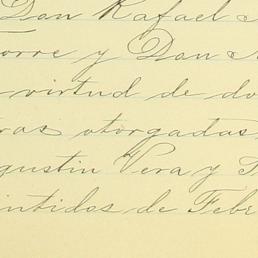 Don Rafael
orre y Don
virtud de do
ras otorgadas
gustin Vera y
intidos de Febr